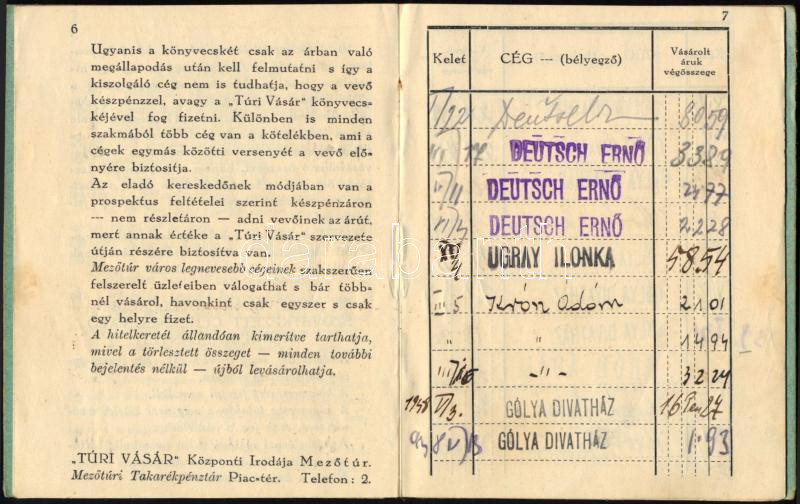 6
Ugyanis a könyvecskét csak az árban való
megállapodás után kell felmutatni s így a
kiszolgáló cég nem is tudhatja, hogy a vevő
készpénzzel, avagy a „Túri Vásár" könyvecs-
kéjével fog fizetni. Különben is minden
szakmából több cég van a kötelékben, ami a
cégek egymás közötti versenyét a vevő elő-
nyére biztosítja.
Az eladó kereskedőnek módjában van a
prospektus feltételei szerint készpénzáron
--- nem részletáron — adni vevőinek az árút,
mert annak értéke a „Túri Vásár" szervezete
útján részére biztosítva van.
Mezőtúr város legnevesebb cégeinek szakszerűen
felszerelt üzleteiben válogathat s bár több-
nél vásárol, havonkint csak egyszer s csak
egy helyre fizet.
A hitelkeretét állandóan kimerítve tarthatja,
mivel a törlesztett összeget — minden további
bejelentés nélkül — újból levásárolhatja.
„TÚRI VÁSÁR" Központi Irodája Mezőtúr.
Mezőtúri Takarékpénztár Piac-tér. Telefon: 2.
7
Kelet CÉG --- (bélyegző) Vásárolt
áruk
végösszege
/22 Deutsch 80 59
17 DEUTSCH ERNŐ 33 89
/11 DEUTSCH ERNŐ 77
DEUTSCH ERNŐ 2 28
UGRAY ILONKA 58 54
III 5 Krón Ádám 21 01
" " 14 94
-"- 32 24
1938 GÓLYA DIVATHÁZ 16 27
GÓLYA DIVATHÁZ 1.93